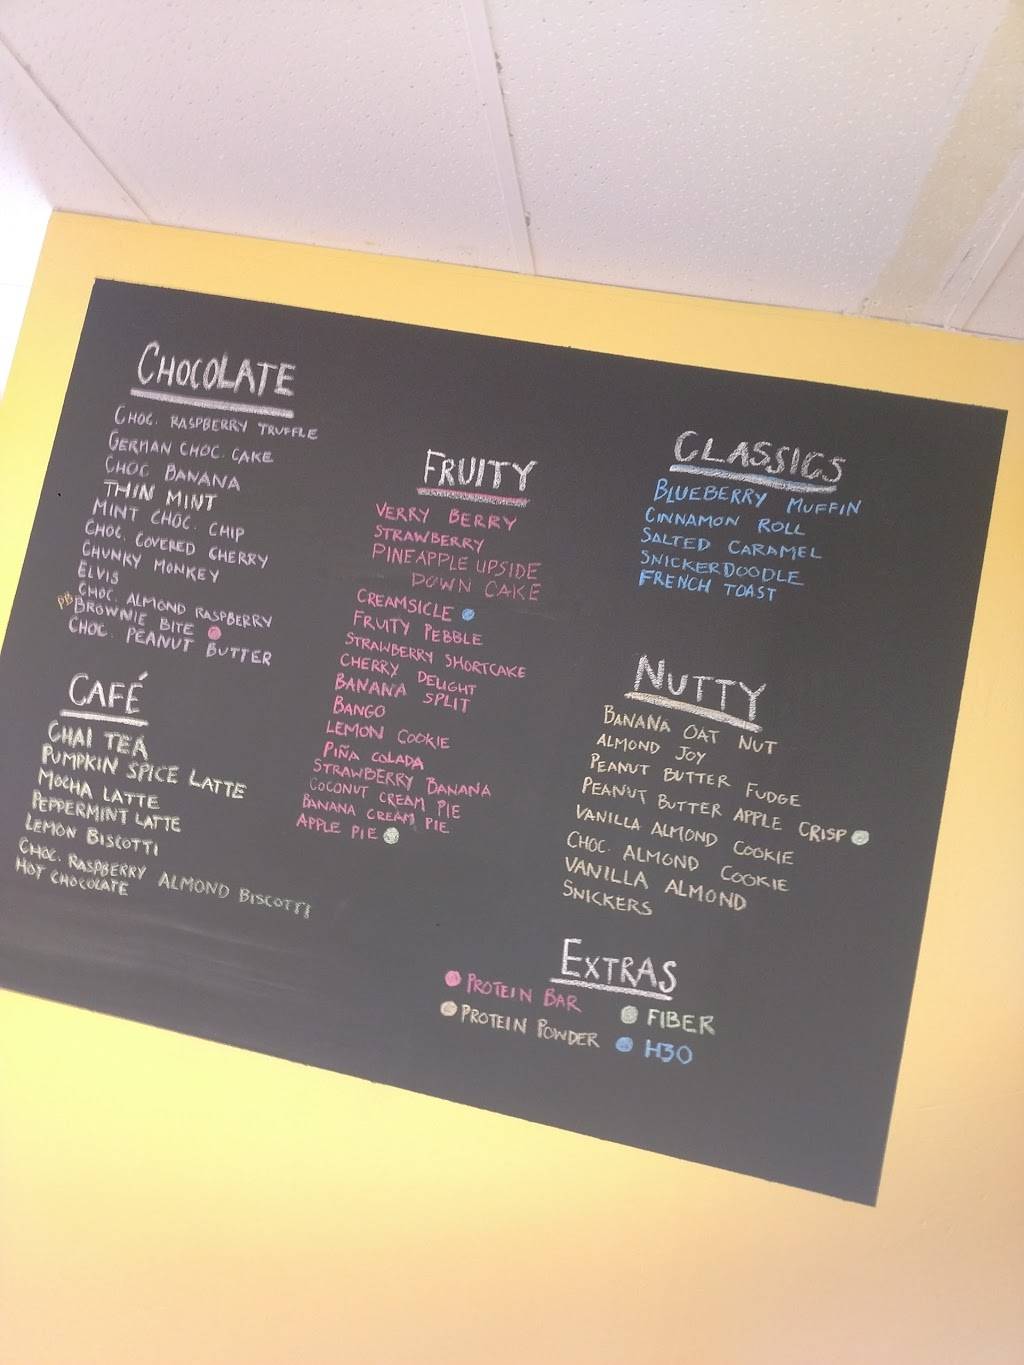 CHOCOLATE
CHOC. RASPBERRY TRUFFLE
GERMAN CHOC. CAKE
CHOC BANANA
THIN MINT
MINT CHOC. CHIP
CHOC. COVERED CHERRY
CHUNKY MONKEY
ELVIS
CHOC. ALMOND RASPBERRY
PB BROWNIE BITE
CHOC. PEANUT BUTTER
CAFÉ
CHAI TEA
PUMPKIN SPICE LATTE
MOCHA LATTE
PEPPERMINT LATTE
LEMON BISCOTTI
CHOC. RASPBERRY ALMOND BISCOTTI
HOT CHOCOLATE
FRUITY
VERRY BERRY
STRAWBERRY
PINEAPPLE UPSIDE
DOWN CAKE
CREAMSICLE
FRUITY PEBBLE
STRAWBERRY SHORTCAKE
CHERRY DELIGHT
BANANA SPLIT
BANGO
LEMON COOKIE
PIÑA COLADA
STRAWBERRY BANANA
COCONUT CREAM PIE
BANANA CREAM PIE
APPLE PIE
CLASSICS
BLUEBERRY MUFFIN
CINNAMON ROLL
SALTED CARAMEL
SNICKERDOODLE
FRENCH TOAST
NUTTY
BANANA OAT NUT
ALMOND JOY
PEANUT BUTTER FUDGE
PEANUT BUTTER APPLE CRISP
VANILLA ALMOND COOKIE
CHOC. ALMOND COOKIE
VANILLA ALMOND
SNICKERS
EXTRAS
PROTEIN BAR
FIBER
PROTEIN POWDER
H3O